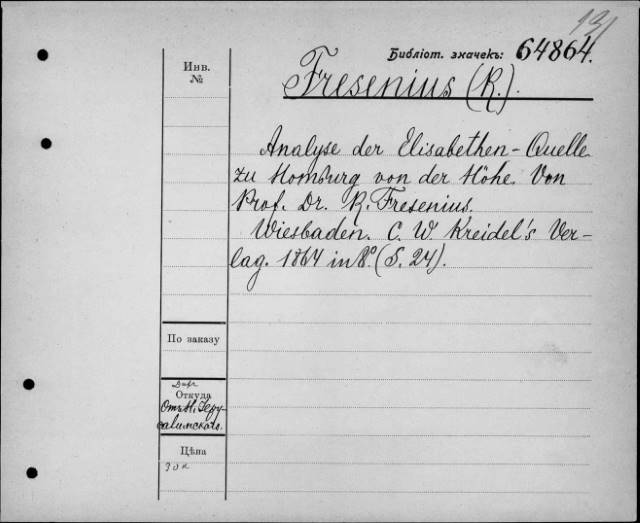 131
Библіот. значекъ: 64864.
Инв.
№
Fresenius (R.).
Analyse der Elisabethen-Quelle
zu Homburg von der Höhe. Von
Prof. Dr. R. Fresenius.
Wiesbaden. C. W. Kreidel's Ver-
lag. 1864 in 8°. (S. 24).
По заказу
Даръ
Откуда
Отъ Н. Iеру-
салимскаго.
Цѣна
30 к